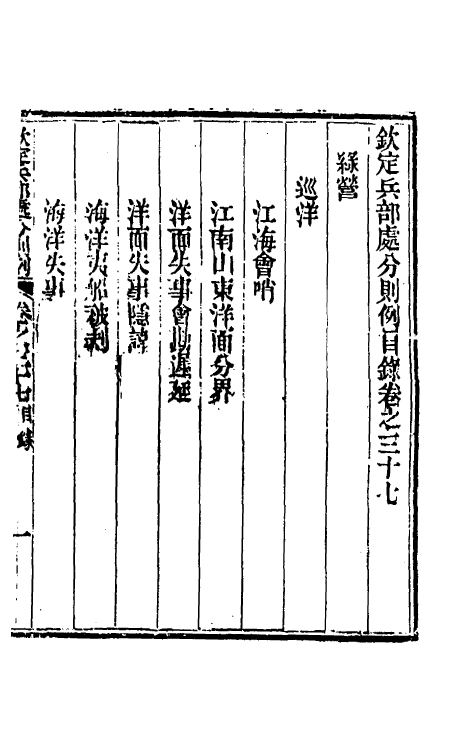 欽定兵部處分則例目錄卷之三十七
綠營
巡洋
江海會哨
江南山東洋面分界
洋面失事會勘遲延
洋面失事隱諱
海洋夷船被刦
海洋失事
欽定兵部處分則例 卷之三十七目錄 一